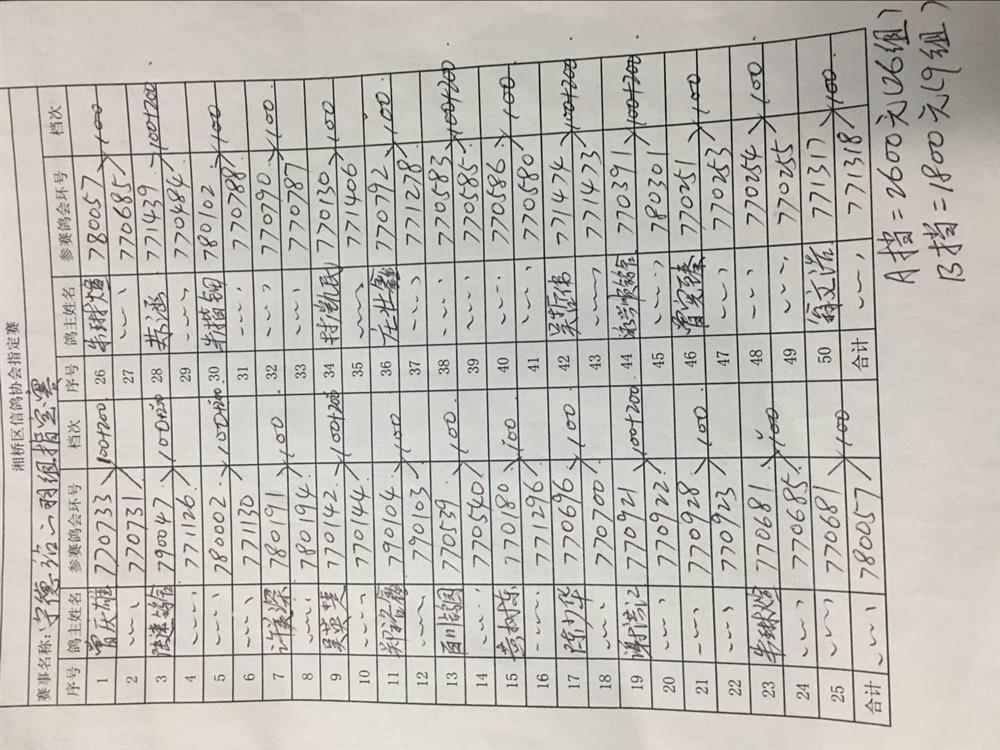 湘桥区信鸽协会指定赛
赛事名称: 宁德站二羽组指定赛
序号 鸽主姓名 参赛鸽会环号 档次 序号 鸽主姓名 参赛鸽会环号 档次
1 曾庆雄 770733 100+200 26 朱琳煌 780057 100
2 770731 27 770685
3 陆速鸽舍 790047 100+200 28 朱涵 771439 100+200
4 771126 29 770484
5 780002 100+200 30 780102 100
6 771130 31 770788
7 许溪深 780191 100 32 770790 100
8 780194 33 770787
9 吴英楚 770142 100+200 34 770130 100
10 770144 35 771406
11 790104 100 36 庄壮鑫 770792 100
12 790103 37 771278
13 770539 100 38 770583 100+200
14 770540 39 770585
15 黄树东 770180 100 40 770586 100
16 771296 41 770580
17 陈少华 770696 100 42 771474 100+200
18 770700 43 771473
19 谢洪江 770921 100+200 44 永兴师鸽舍 770391 100+200
20 770922 45 780301
21 770928 100 46 曾奕臻 770251 100
22 770923 47 770253
23 朱琳煌 770681 100 48 770254 100
24 770685 49 770255
25 770681 100 50 翁文浩 771317 100
合计 780057 合计 771318
A挡=2600元(26组)
B挡=1800元(9组)